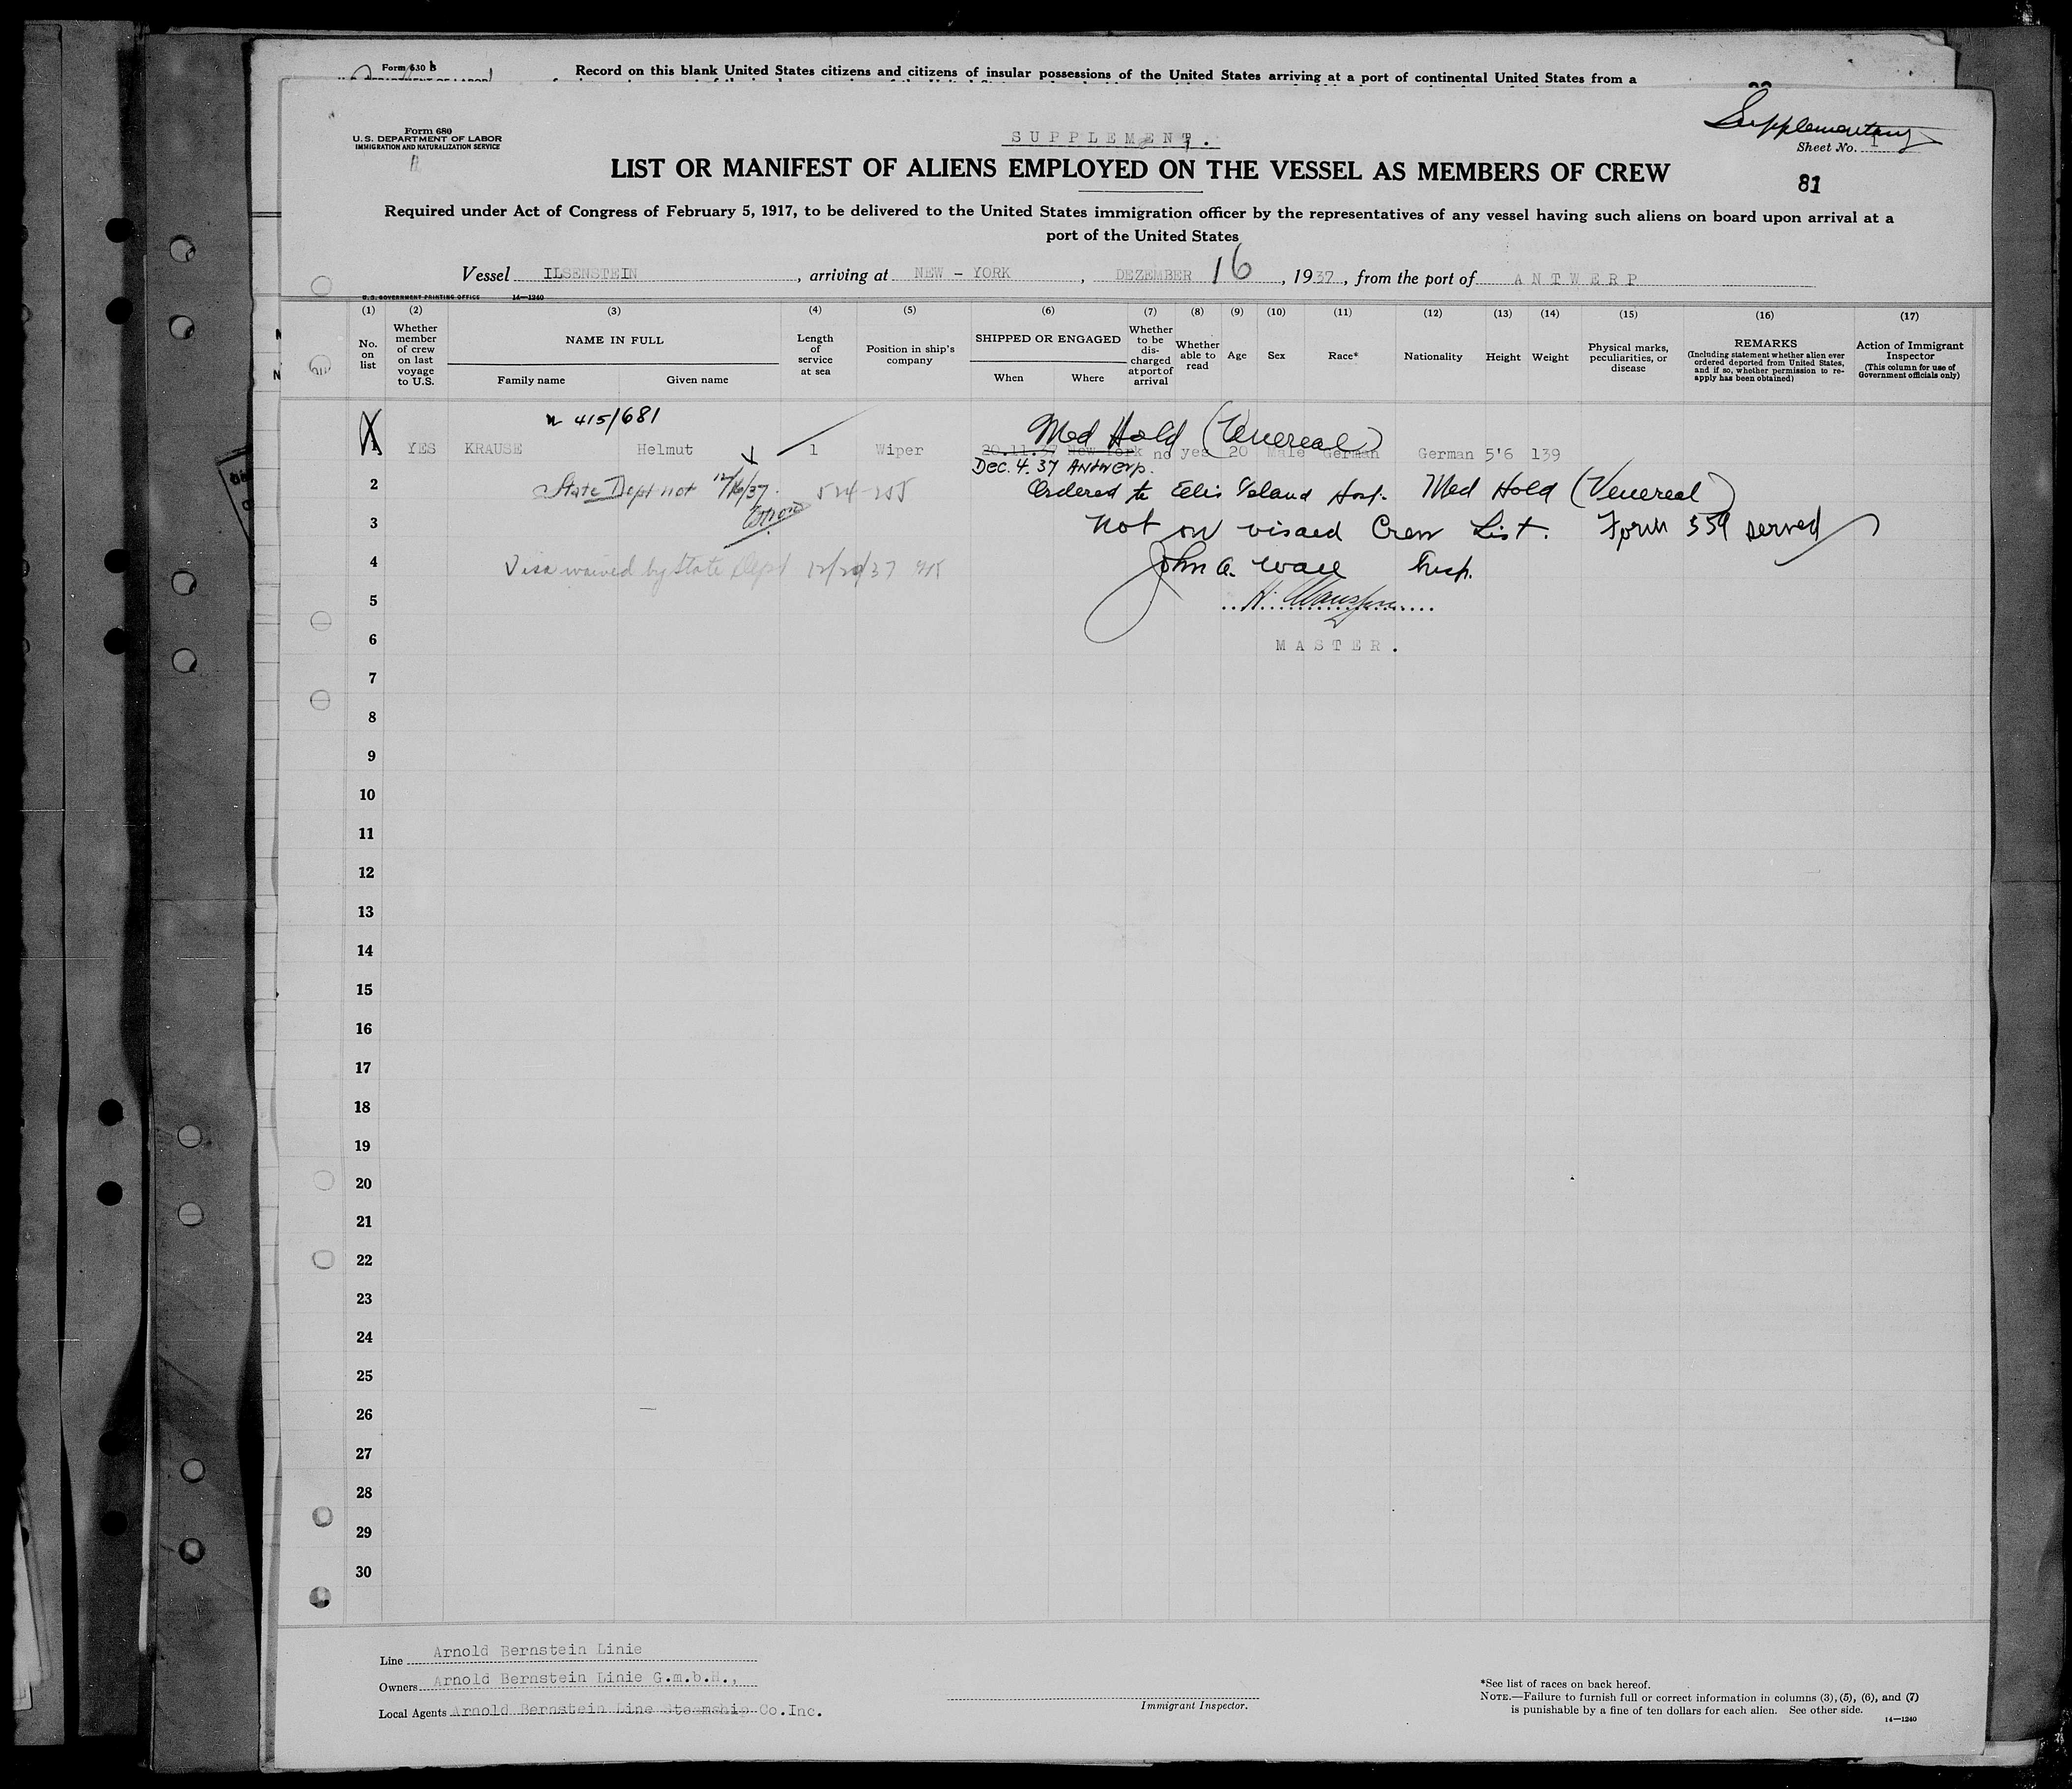 Form 630 B
Record on this blank United States citizens and citizens of insular possessions of the United States arriving at a port of continental United States from a
Form 680
U.S. DEPARTMENT OF LABOR
IMMIGRATION AND NATURALIZATION SERVICE
SUPPLEMENT.
Supplementary
Sheet No. 1
LIST OR MANIFEST OF ALIENS EMPLOYED ON THE VESSEL AS MEMBERS OF CREW
81
Required under Act of Congress of February 5, 1917, to be delivered to the United States immigration officer by the representatives of any vessel having such aliens on board upon arrival at a
port of the United States
Vessel ILSENSTEIN, arriving at NEW - YORK, DEZEMBER 16, 1937, from the port of ANTWERP
U.S. GOVERNMENT PRINTING OFFICE 14—1240
(1) (2) (3) (4) (5) (6) (7) (8) (9) (10) (11) (12) (13) (14) (15) (16) (17)
No. on list
Whether member of crew on last voyage to U.S.
NAME IN FULL
Family name Given name
Length of service at sea
Position in ship's company
SHIPPED OR ENGAGED
When Where
Whether to be discharged at port of arrival
Whether able to read
Age
Sex
Race*
Nationality
Height
Weight
Physical marks, peculiarities, or disease
REMARKS
(Including statement whether alien ever ordered deported from United States, and if so, whether permission to reapply has been obtained)
Action of Immigrant Inspector
(This column for use of Government officials only)
415/681
Med Hold (Venereal)
1 YES KRAUSE Helmut 1 Wiper 20.11.37 New York no yes 20 Male German German 5'6 139
Dec. 4. 37 Antwerp.
2 State Dept not 12/16/37. Ordered to Ellis Island Hosp. Med Hold (Venereal)
3 Not on visaed Crew List. Form 559 served
4 Visa waived by State Dept 12/20/37 John A. Wall Insp.
5
6 MASTER.
7
8
9
10
11
12
13
14
15
16
17
18
19
20
21
22
23
24
25
26
27
28
29
30
Line Arnold Bernstein Linie
Owners Arnold Bernstein Linie G.m.b.H.,
Local Agents Arnold Bernstein Line Steamship Co.Inc.
Immigrant Inspector.
*See list of races on back hereof.
NOTE.—Failure to furnish full or correct information in columns (3), (5), (6), and (7)
is punishable by a fine of ten dollars for each alien. See other side.
14—1240